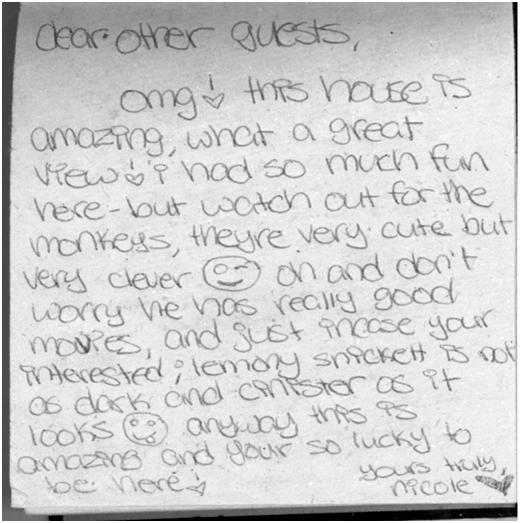 dear other guests,
omg! this house is
amazing, what a great
view! i had so much fun
here - but watch out for the
monkeys, theyre very cute but
very clever oh and don't
worry he has really good
movies, and just incase your
interested; lemony snickett is not
as dark and cinister as it
looks anyway this is
amazing and your so lucky to
be here!
yours truly,
nicole